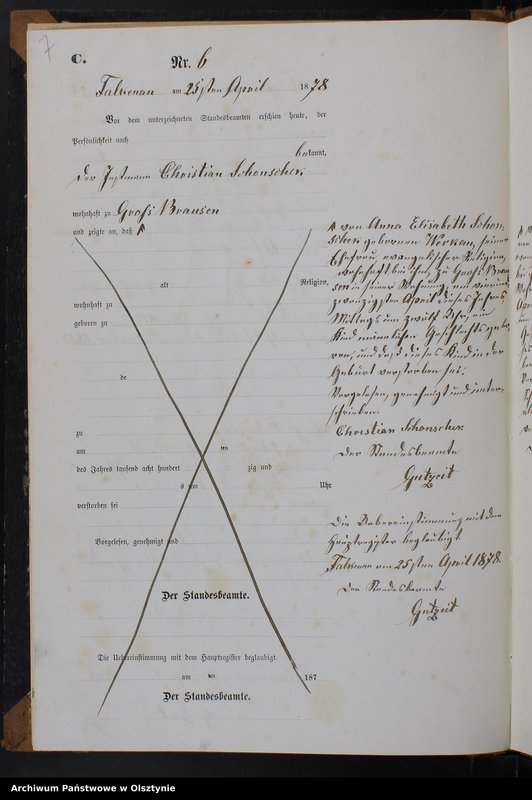 7
C.
Nr. 6
am 25sten April 1878
Vor dem unterzeichneten Standesbeamten erschien heute, der
Persönlichkeit nach
bekannt,
der Instmann Christian Schonscheck
wohnhaft zu Groß Brausen
und zeigte an, daß
alt Religion,
wohnhaft zu
geboren zu
de
zu
am ten
des Jahres tausend acht hundert zig und
s um Uhr
verstorben sei
Vorgelesen, genehmigt und
Der Standesbeamte.
Die Uebereinstimmung mit dem Hauptregister beglaubigt.
am ten 187
Der Standesbeamte.
von Anna Elisabeth Schon-
scheck gebornen seiner
Ehefrau, evangelischer Religion,
wohnhaft bei ihm, zu Groß Brau-
sen in seiner Wohnung, am vierund
zwanzigsten April dieses Jahres
Mittags um zwölf Uhr, ein
Kind männlichen Geschlechts gebo-
ren, und daß dieses Kind in der
Geburt verstorben sei.
Vorgelesen, genehmigt und unter-
schrieben.
Christian Schonscheck
Der Standesbeamte
Gutzeit
Die Uebereinstimmung mit dem
Hauptregister beglaubigt.
am 25sten April 1878.
Der Standesbeamte
Gutzeit
Archiwum Państwowe w Olsztynie